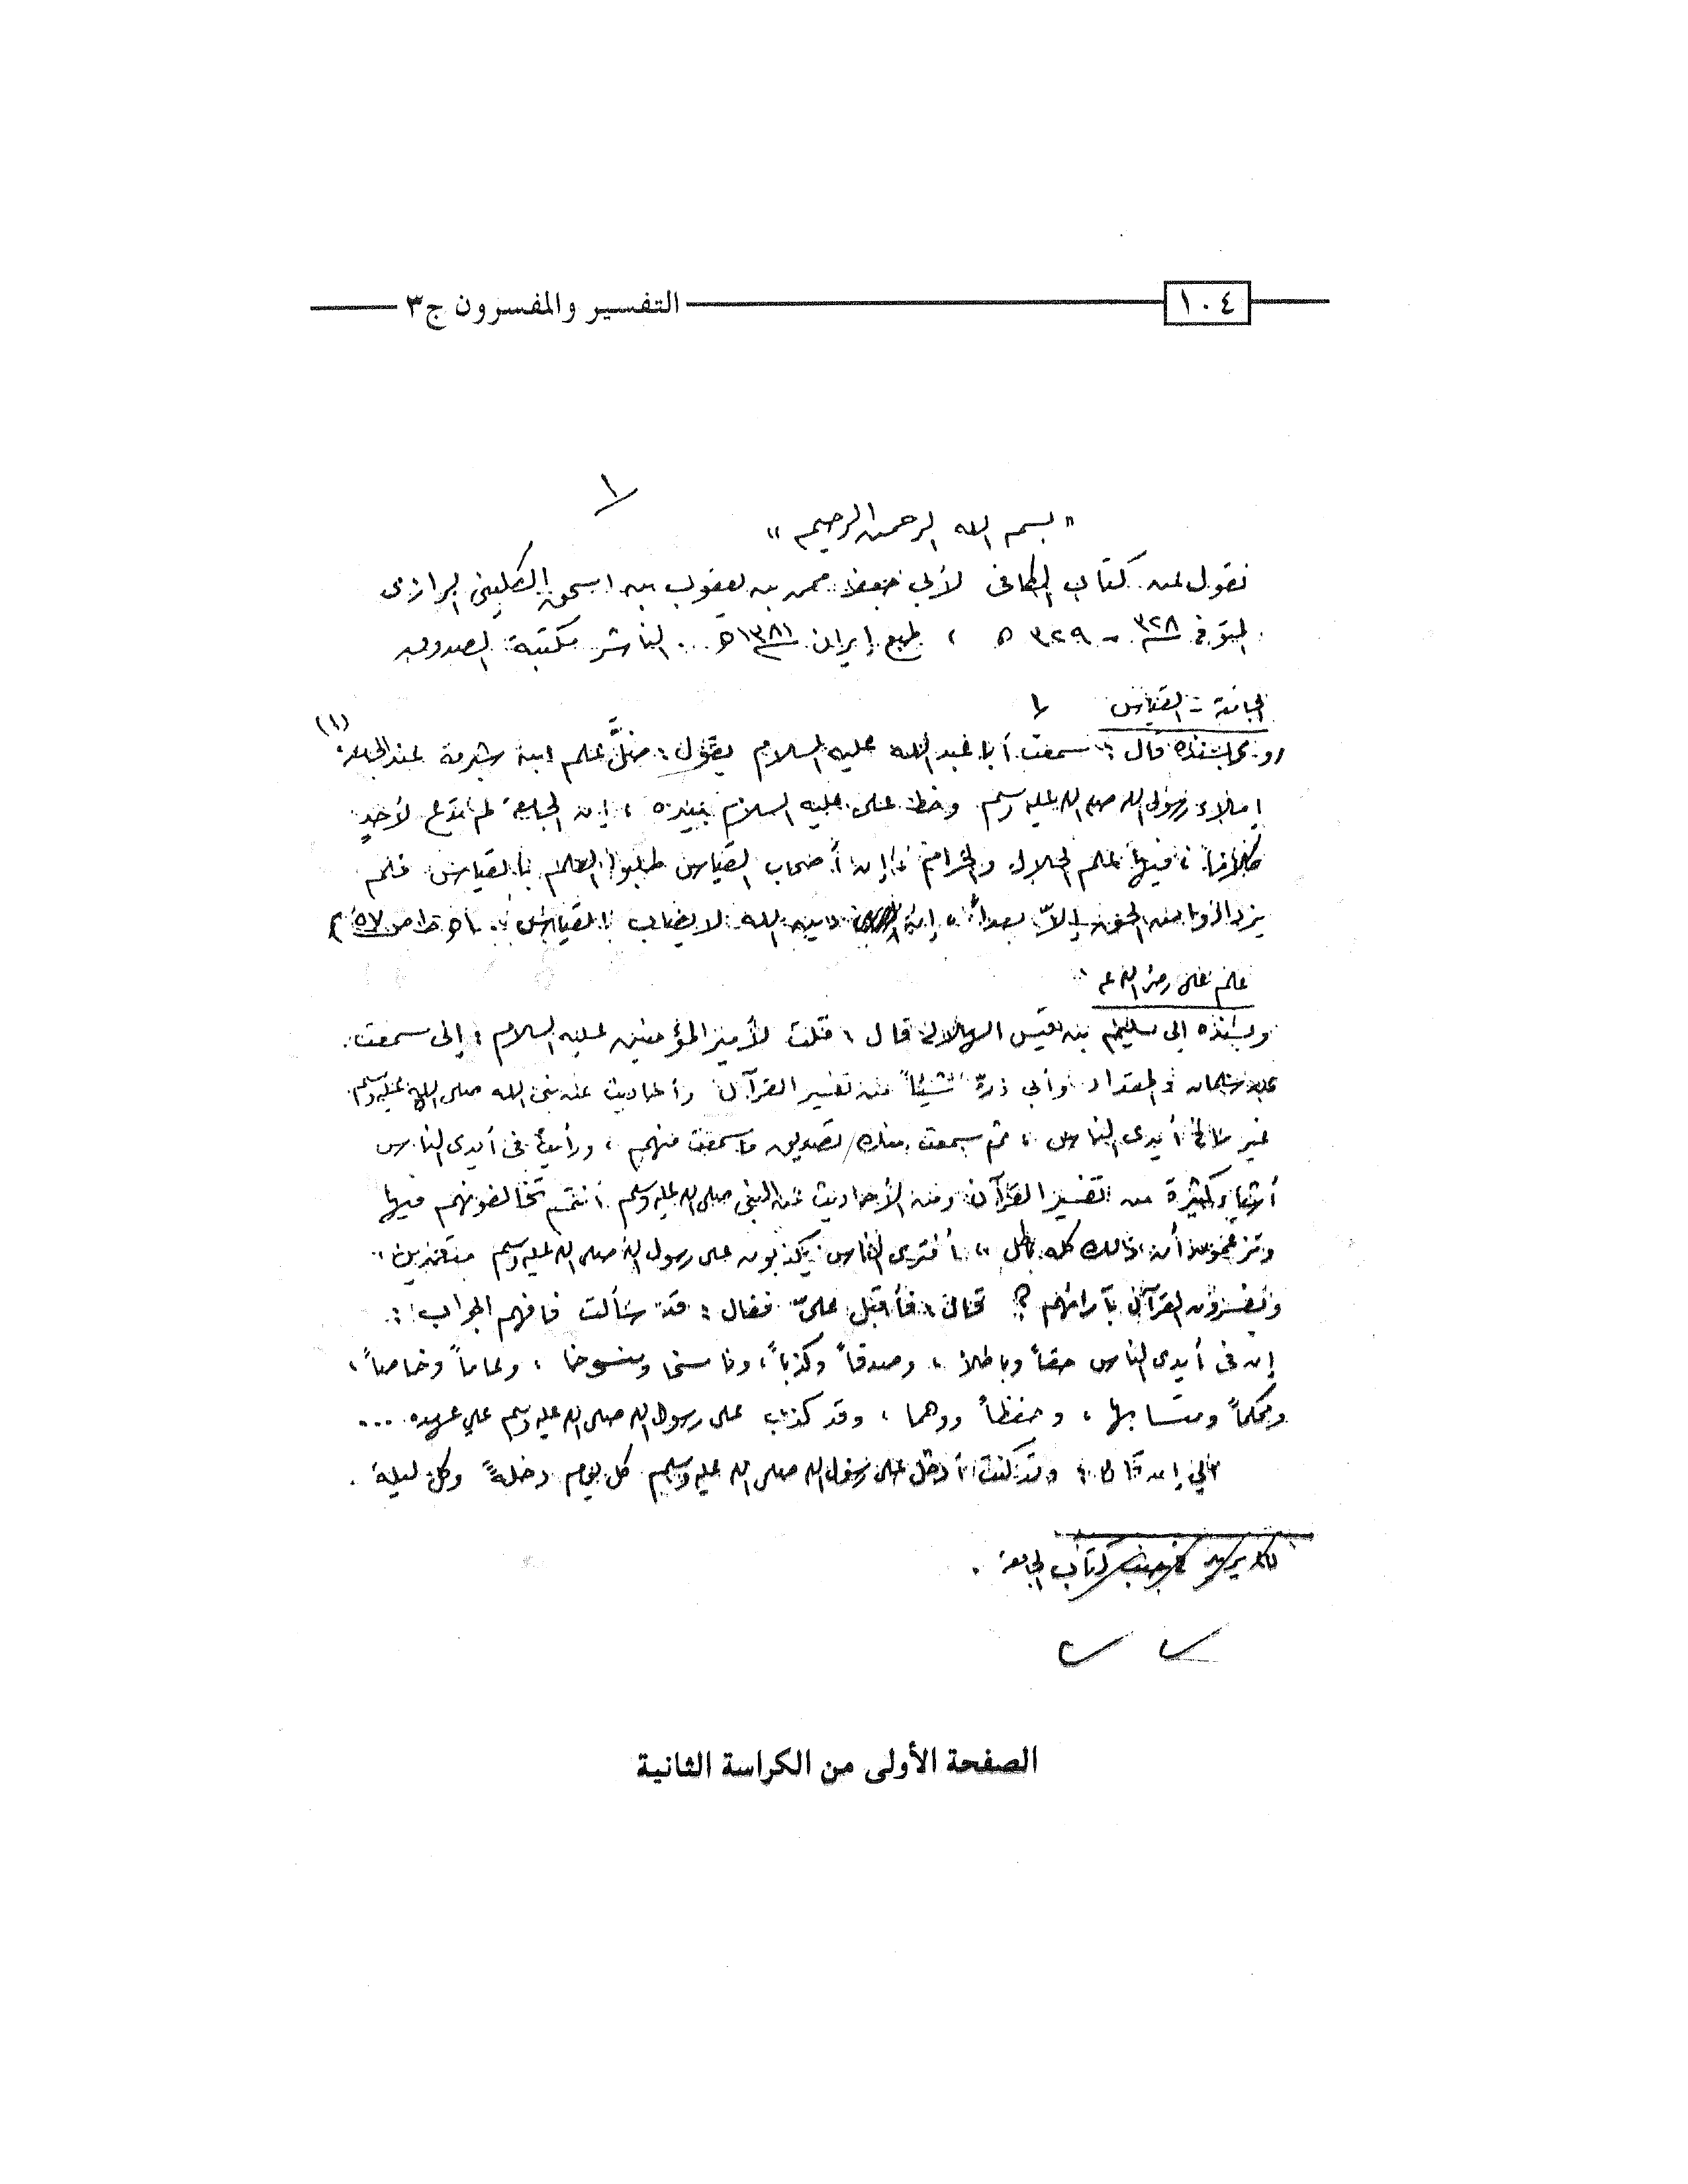 ١٠٤ التفسير والمفسرون ج٣
١
" بسم الله الرحمن الرحيم "
نقول من كتاب الكافى لأبى جعفر محمد بن يعقوب بن اسحق الكلينى الرازى
المتوفى ٣٢٨ - ٣٢٩ ه ، طبع إيران ١٣٨١ ه . الناشر مكتبة الصدوق
الجامعة - القياس
روى بسنده قال : سمعت أبا عبد الله عليه السلام يقول : ضلَّ علم ابن شبرمة عند الجامعة (١)
إملاء رسول الله صلى الله عليه وسلم وخط على عليه السلام بيده ، إن الجامعة لم تدع لأحدٍ
كلاماً ، فيها علم الحلال والحرام ، إن أصحاب القياس طلبوا العلم بالقياس فلم
يزدادوا من الحق إلاّ بعداً ، إن دين الله لا يصاب بالقياس . اه ح١ ص ٥٧
علم على رضى الله عنه
وبسنده إلى سليم بن قيس الهلالى قال : قلت لأمير المؤمنين عليه السلام : إنى سمعت
من سلمان والمقداد وأبى ذرّ شيئاً من تفسير القرآن وأحاديث عن نبى الله صلى الله عليه وسلم
غير ما فى أيدى الناس ، ثم سمعت منك تصديق ما سمعت منهم ، ورأيت فى أيدى الناس
أشياء كثيرة من تفسير القرآن ومن الأحاديث عن النبى صلى الله عليه وسلم أنتم تخالفونهم فيها
وتزعمون أن ذلك كله باطل ، أفترى الناس يكذبون على رسول الله صلى الله عليه وسلم متعمدين ،
ويفسرون القرآن بآرائهم ؟ قال : فأقبل علىّ فقال : قد سألت فافهم الجواب :
إن فى أيدى الناس حقاً وباطلاً ، وصدقاً وكذباً ، وناسخا ومنسوخا ، وعاماً وخاصاً ،
ومحكماً ومتشابها ، وحفظاً ووهما ، وقد كذب على رسول الله صلى الله عليه وسلم على عهده ...
إلى إن قال : وقد كنت أدخل على رسول الله صلى الله عليه وسلم كل يوم دخلةً وكل ليلة .
كتاب الجامعة .
الصفحة الأولى من الكراسة الثانية